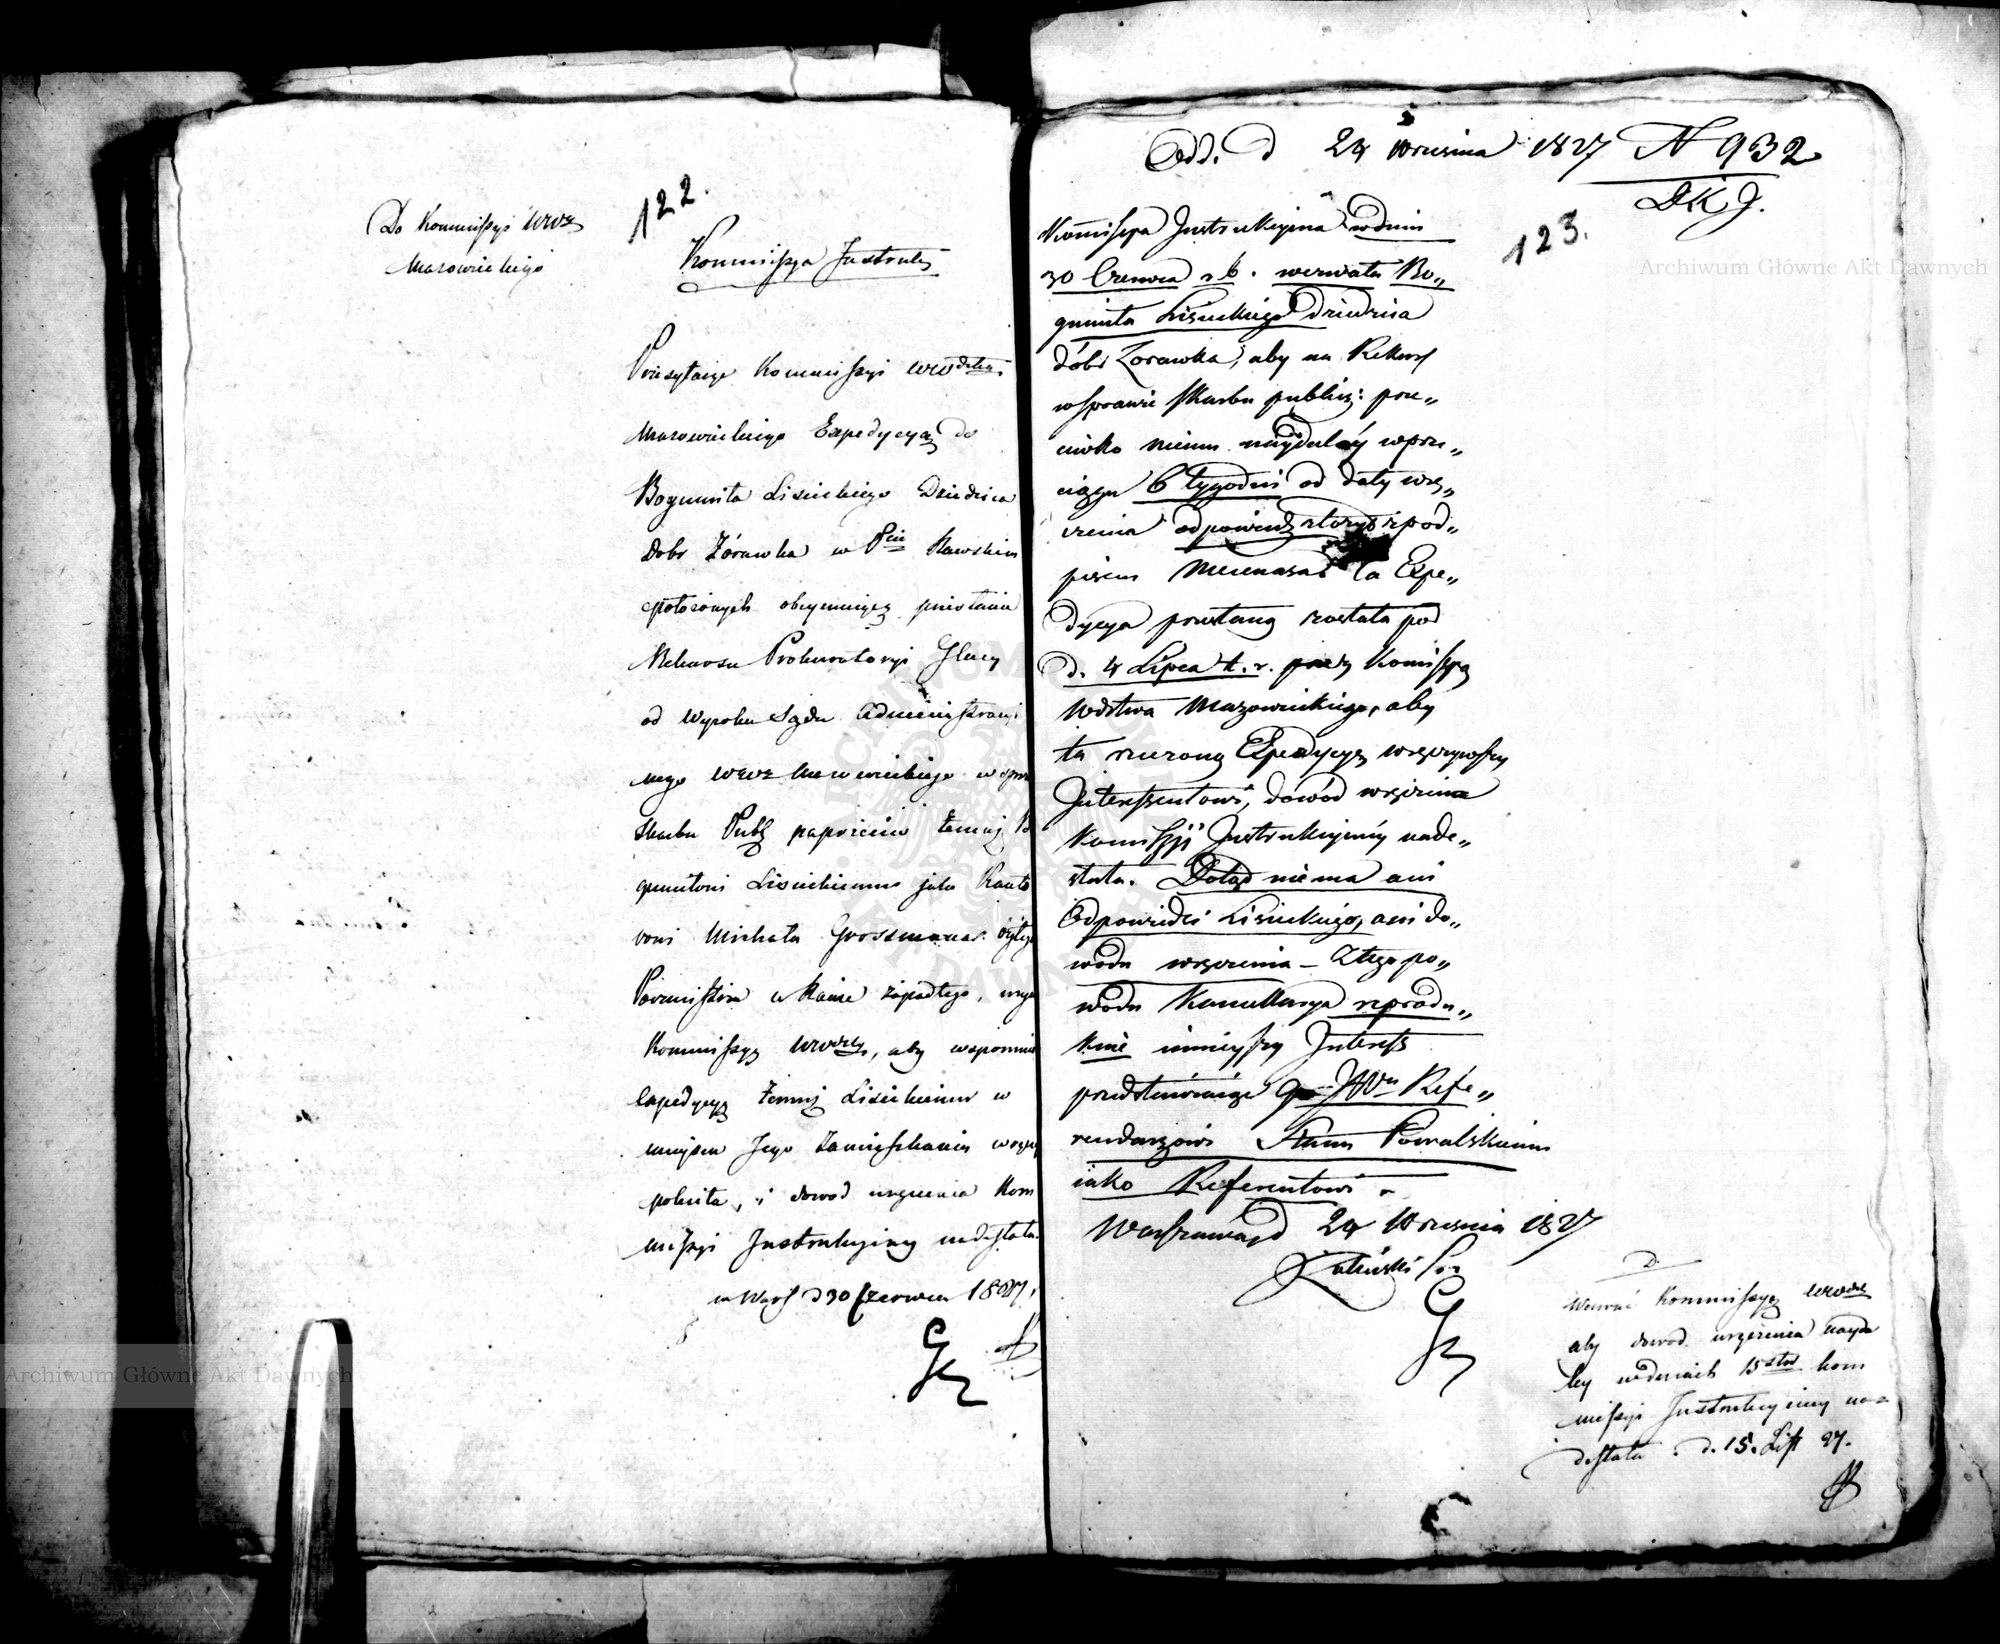 122.
Do Kommissyi Wwz
Mazowieckiego
Kommissya Instruk
Przesyłając Kommissyi Wwdzkiej
Mazowieckiego Expedycyą do
Bogumiła Lisieckiego Dziedzica
Dobr Żórawka w Pcie Rawskim
położonych obeymuiącą przesłanie
Rekursu Prokuratoryi Glney
od Wyroku Sądu Administracyi
nego Wwz Mazowieckiego w spra
Skarbu Publ naprzeciw temuż Bo
gumiłowi Lisieckiemu jako Kauto
rowi Michała Grossmana
w Rawie zapadłego, wzywa
Kommissyą Wwdzką, aby wspomnio
Expedycyą temuż Lisieckiemu w
mieyscu Jego Zamieszkania wręczyć
poleciła, i dowod wręczenia Kom
missyi Instrukcyiney nadesłała.
w Warsz d 30 Czerwca 1827.
Odd. d 24 Września 1827 N 932
D.K.J.
123.
Komissya Instrukcyina w dniu
30 Czerwca r. b. wezwała Bo„
gumiła Lisieckiego Dziedzica
dóbr Zorawka, aby na Rekurs
w sprawie Skarbu publicz: prze„
ciwko niemu naydaléy w prze„
ciągu 6 tygodni od daty wrę„
czenia odpowiedź złożył z pod„
pisem Mecenasa. Ta Expe„
dycya przesłaną została pod
d. 4 Lipca t. r. przez Komissyą
Wdztwa Mazowieckiego, aby
ta rzeczoną Expedycyą wręczywszy
Interessentowi, dowód wręczenia
Komissyi Instrukcyiney nade„
słała. Dotąd niema ani
Odpowiedzi Lisieckiego, ani do„
wodu wręczenia – Z tego po„
wodu Kancellarya reprodu„
kuie ninieyszy Interess
przedstawiaiąc go JWu Refe„
rendarzowi Stanu Kowalskiemu
iako Referentowi.
Warszawa d 24 Września 1827
D.
Wezwać Kommissyą Wwdzką
aby dowod wręczenia nayda
ley w dniach 15stu Kom
missyi Instrukcyiney na=
desłała. d. 15. List 27.
Archiwum Główne Akt Dawnych
Archiwum Główne Akt Dawnych